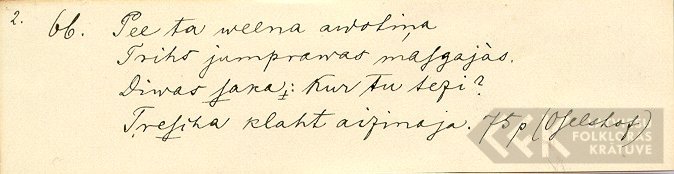 2.
66. Pee ta weena awotiņa
Trihs jumprawas masgajàs.
Diwas saka: Kur tu tezi?
Treschа klaht aizinaja. 75p (Oselshof)
FOLKLORAS
KRĀTUVE